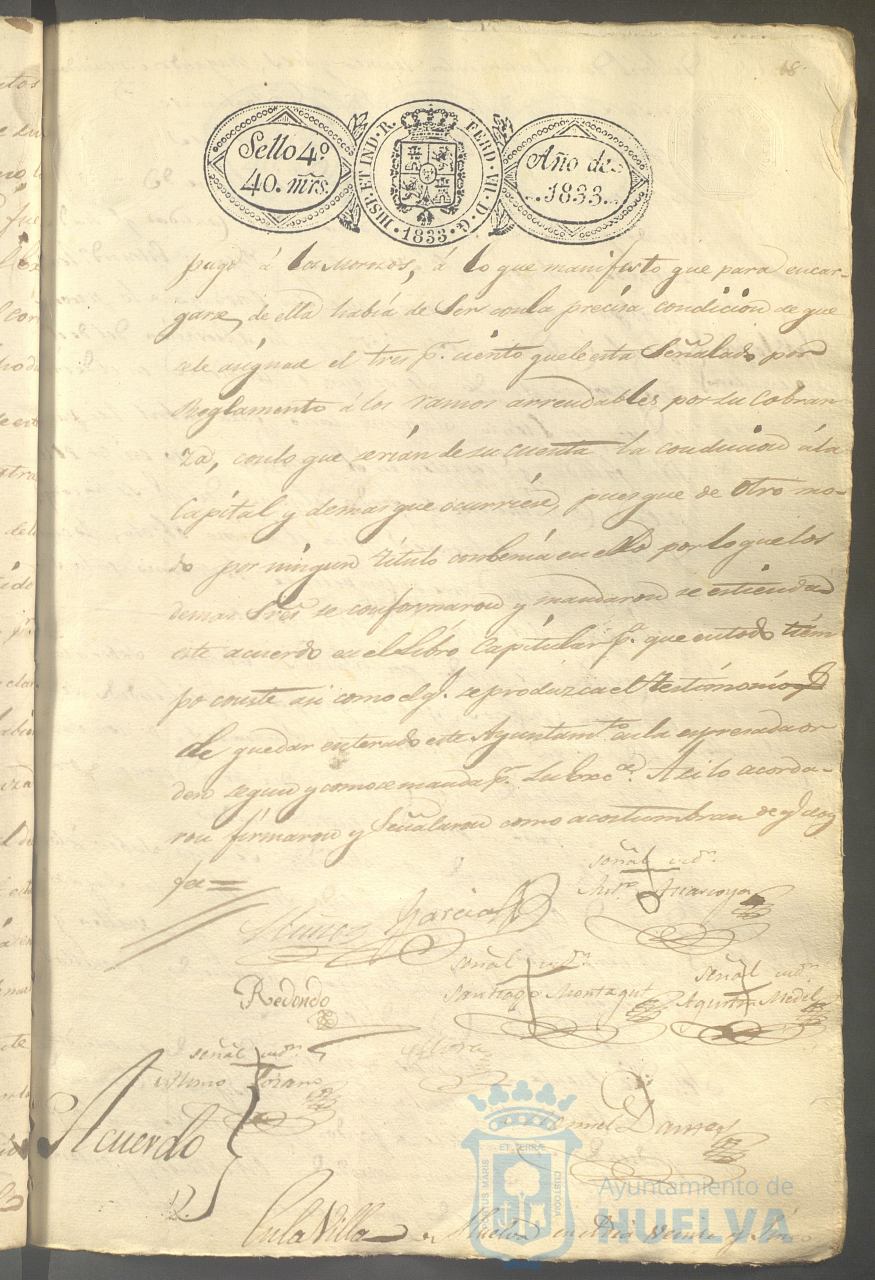 18.
Sello 4º
40. mrs.
HISP. ET IND. R. FERD. VII. D. G.
1833
Año de
1833.
pago á los mornos, á lo que manifesto que para encar-
garse de ella había de Ser con la precisa condicion de que
se le asignase el tres p.r ciento que le está Señalado por
Reglamento á los ramos arrendables por su Cobran-
za, con lo que serían de su cuenta la conducion á la
Capital y demas que ocurriese, pues que de otro mo-
do por ningun título conbenía en ello por lo que los
demas Sres se conformaron y mandaron se estienda
este acuerdo en el Libro Capitular p.a que en todo tiem
po conste asi como el q.e se produzca el Testimonio
de quedar enterado este Ayuntam.to en la espresada or
den segun y como se manda p.r Su Exc.a Asi lo acorda-
ron firmaron y Señalaron como acostumbran de q.e doy
fee =
Señal del
Nuñez Garcia
señal del
Santiago Montagut
señal del
Agustin Medel
Redondo
señal del
Mora
Acuerdo
En la Villa de Huelva en dia veinte y
PORTUS MARIS ET TERRÆ CUSTODIA
Ayuntamiento de
HUELVA